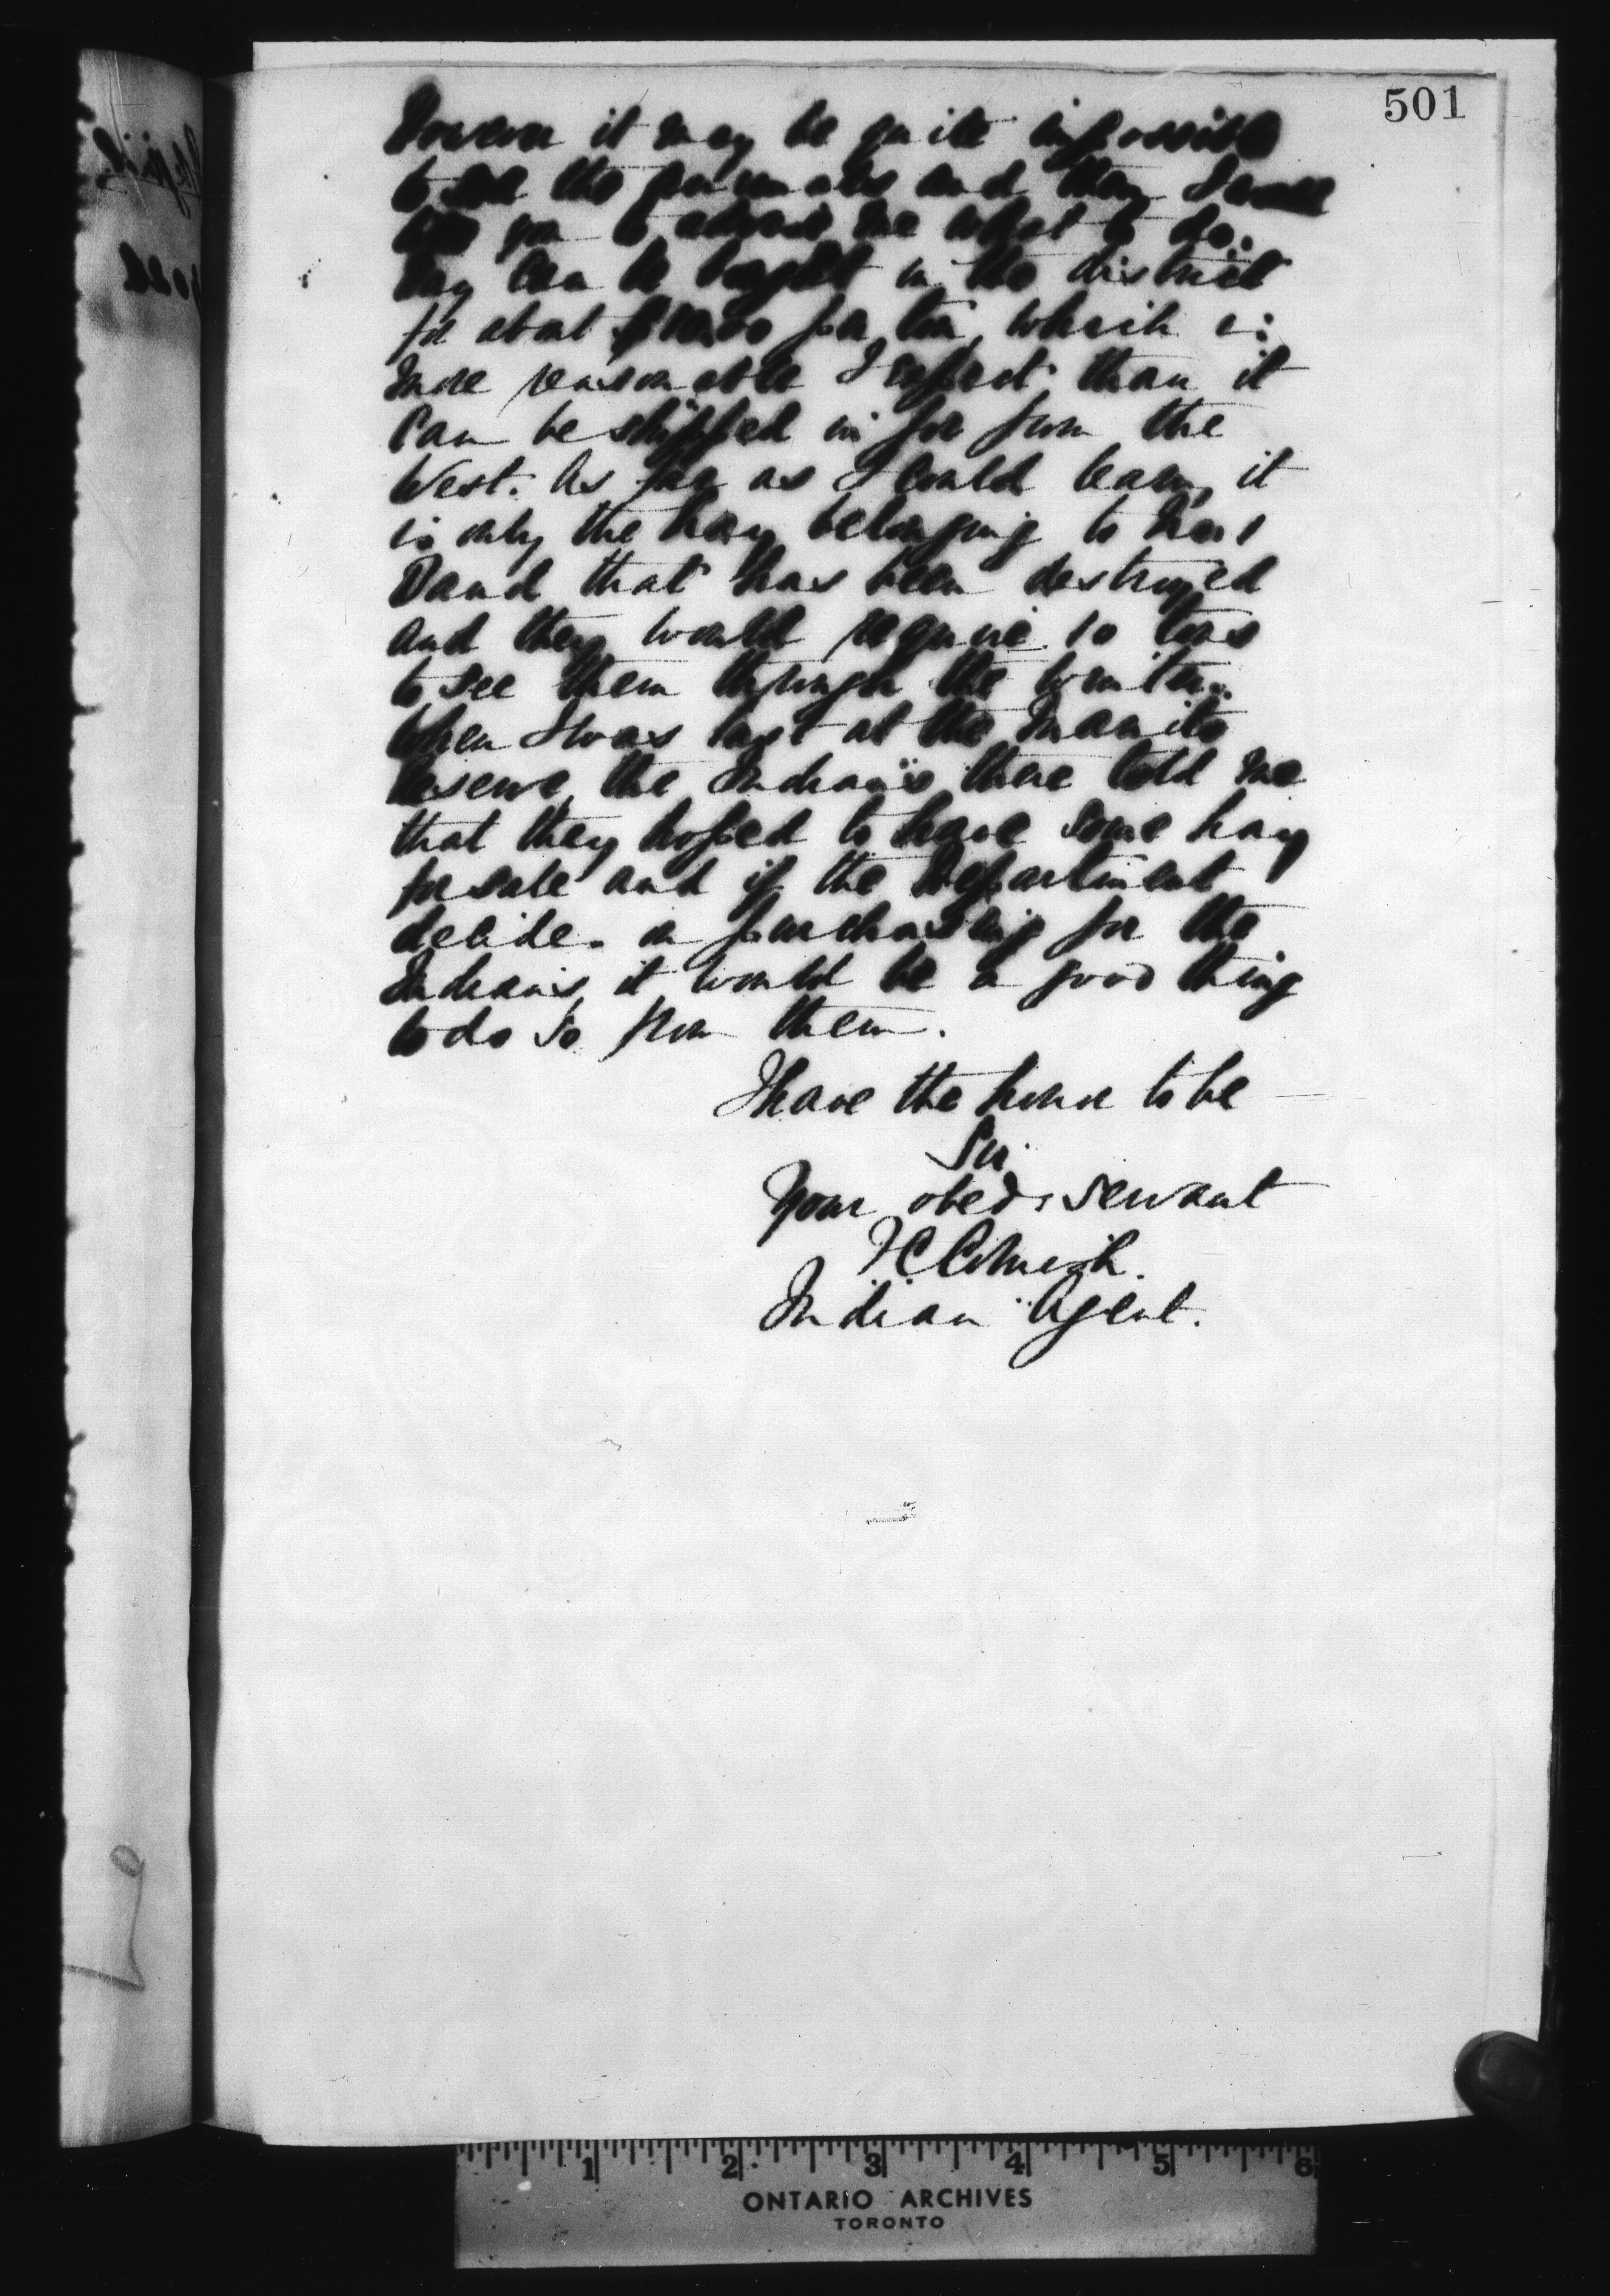 501
However it may be quite impossible
to sell the animals and then I would
like you to advise me what to do.
Hay can be bought in the district
for about $10.00 per ton, which is
more reasonable I expect than it
can be shipped in for from the
West. As far as I could learn, it
is only the hay belonging to
David that has been destroyed
and they would require 10 tons
to see them through the winter.
When I was last at the Manito
Reserve, the Indians there told me
that they hoped to have some hay
for sale and if the Department
decide on purchasing for the
Indians, it would be a good thing
to do so from them.
I have the honor to be
Sir
Your obed. servant
Indian Agent.
1 2 3 4 5 6
ONTARIO ARCHIVES
TORONTO